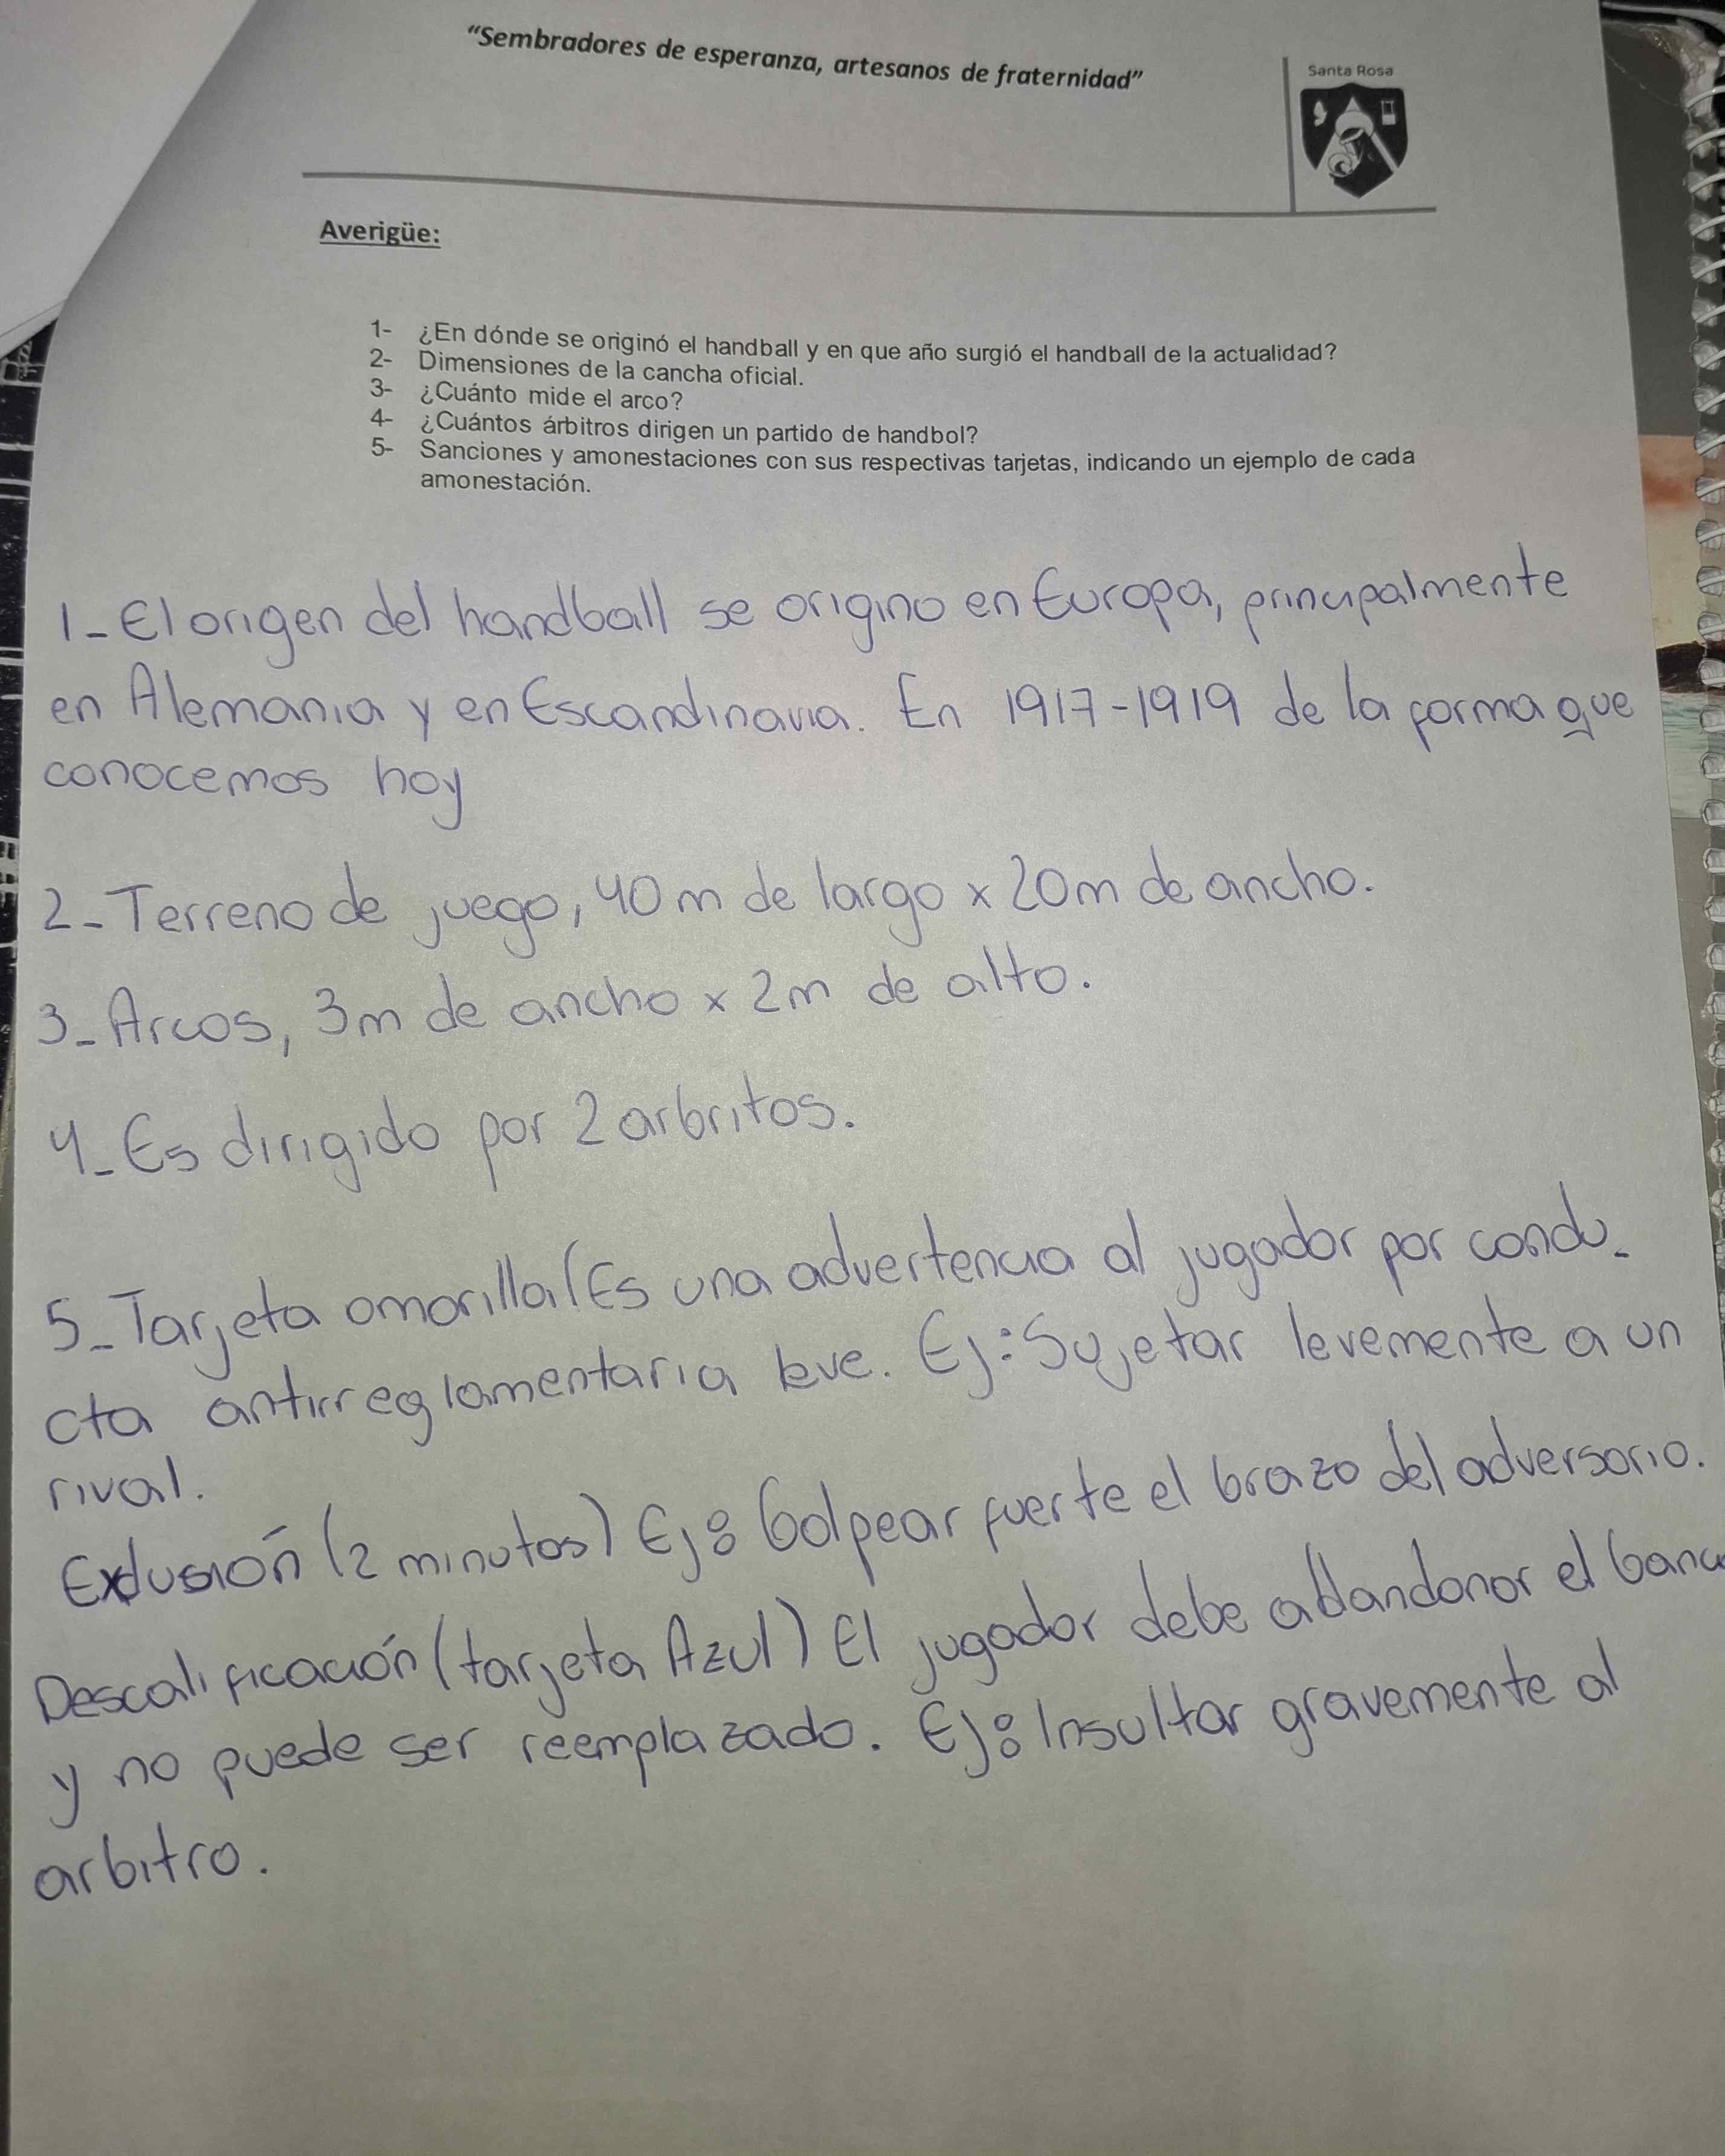 "Sembradores de esperanza, artesanos de fraternidad"
Santa Rosa
Averigüe:
1- ¿En dónde se originó el handball y en que año surgió el handball de la actualidad?
2- Dimensiones de la cancha oficial.
3- ¿Cuánto mide el arco?
4- ¿Cuántos árbitros dirigen un partido de handbol?
5- Sanciones y amonestaciones con sus respectivas tarjetas, indicando un ejemplo de cada
amonestación.
1_ El origen del handball se origino en Europa, principalmente
en Alemania y en Escandinavia. En 1917-1919 de la forma que
conocemos hoy
2_ Terreno de juego, 40m de largo x 20m de ancho.
3_ Arcos, 3m de ancho x 2m de alto.
4_ Es dirigido por 2 arbritos.
5_ Tarjeta amarilla (Es una advertencia al jugador por condu_
cta antirreglamentaria leve. Ej: Sujetar levemente a un
rival.
Exclusión (2 minutos) Ej: Golpear fuerte el brazo del adversario.
Descalificación (tarjeta Azul) El jugador debe abandonar el banco
y no puede ser reemplazado. Ej: Insultar gravemente al
arbitro.